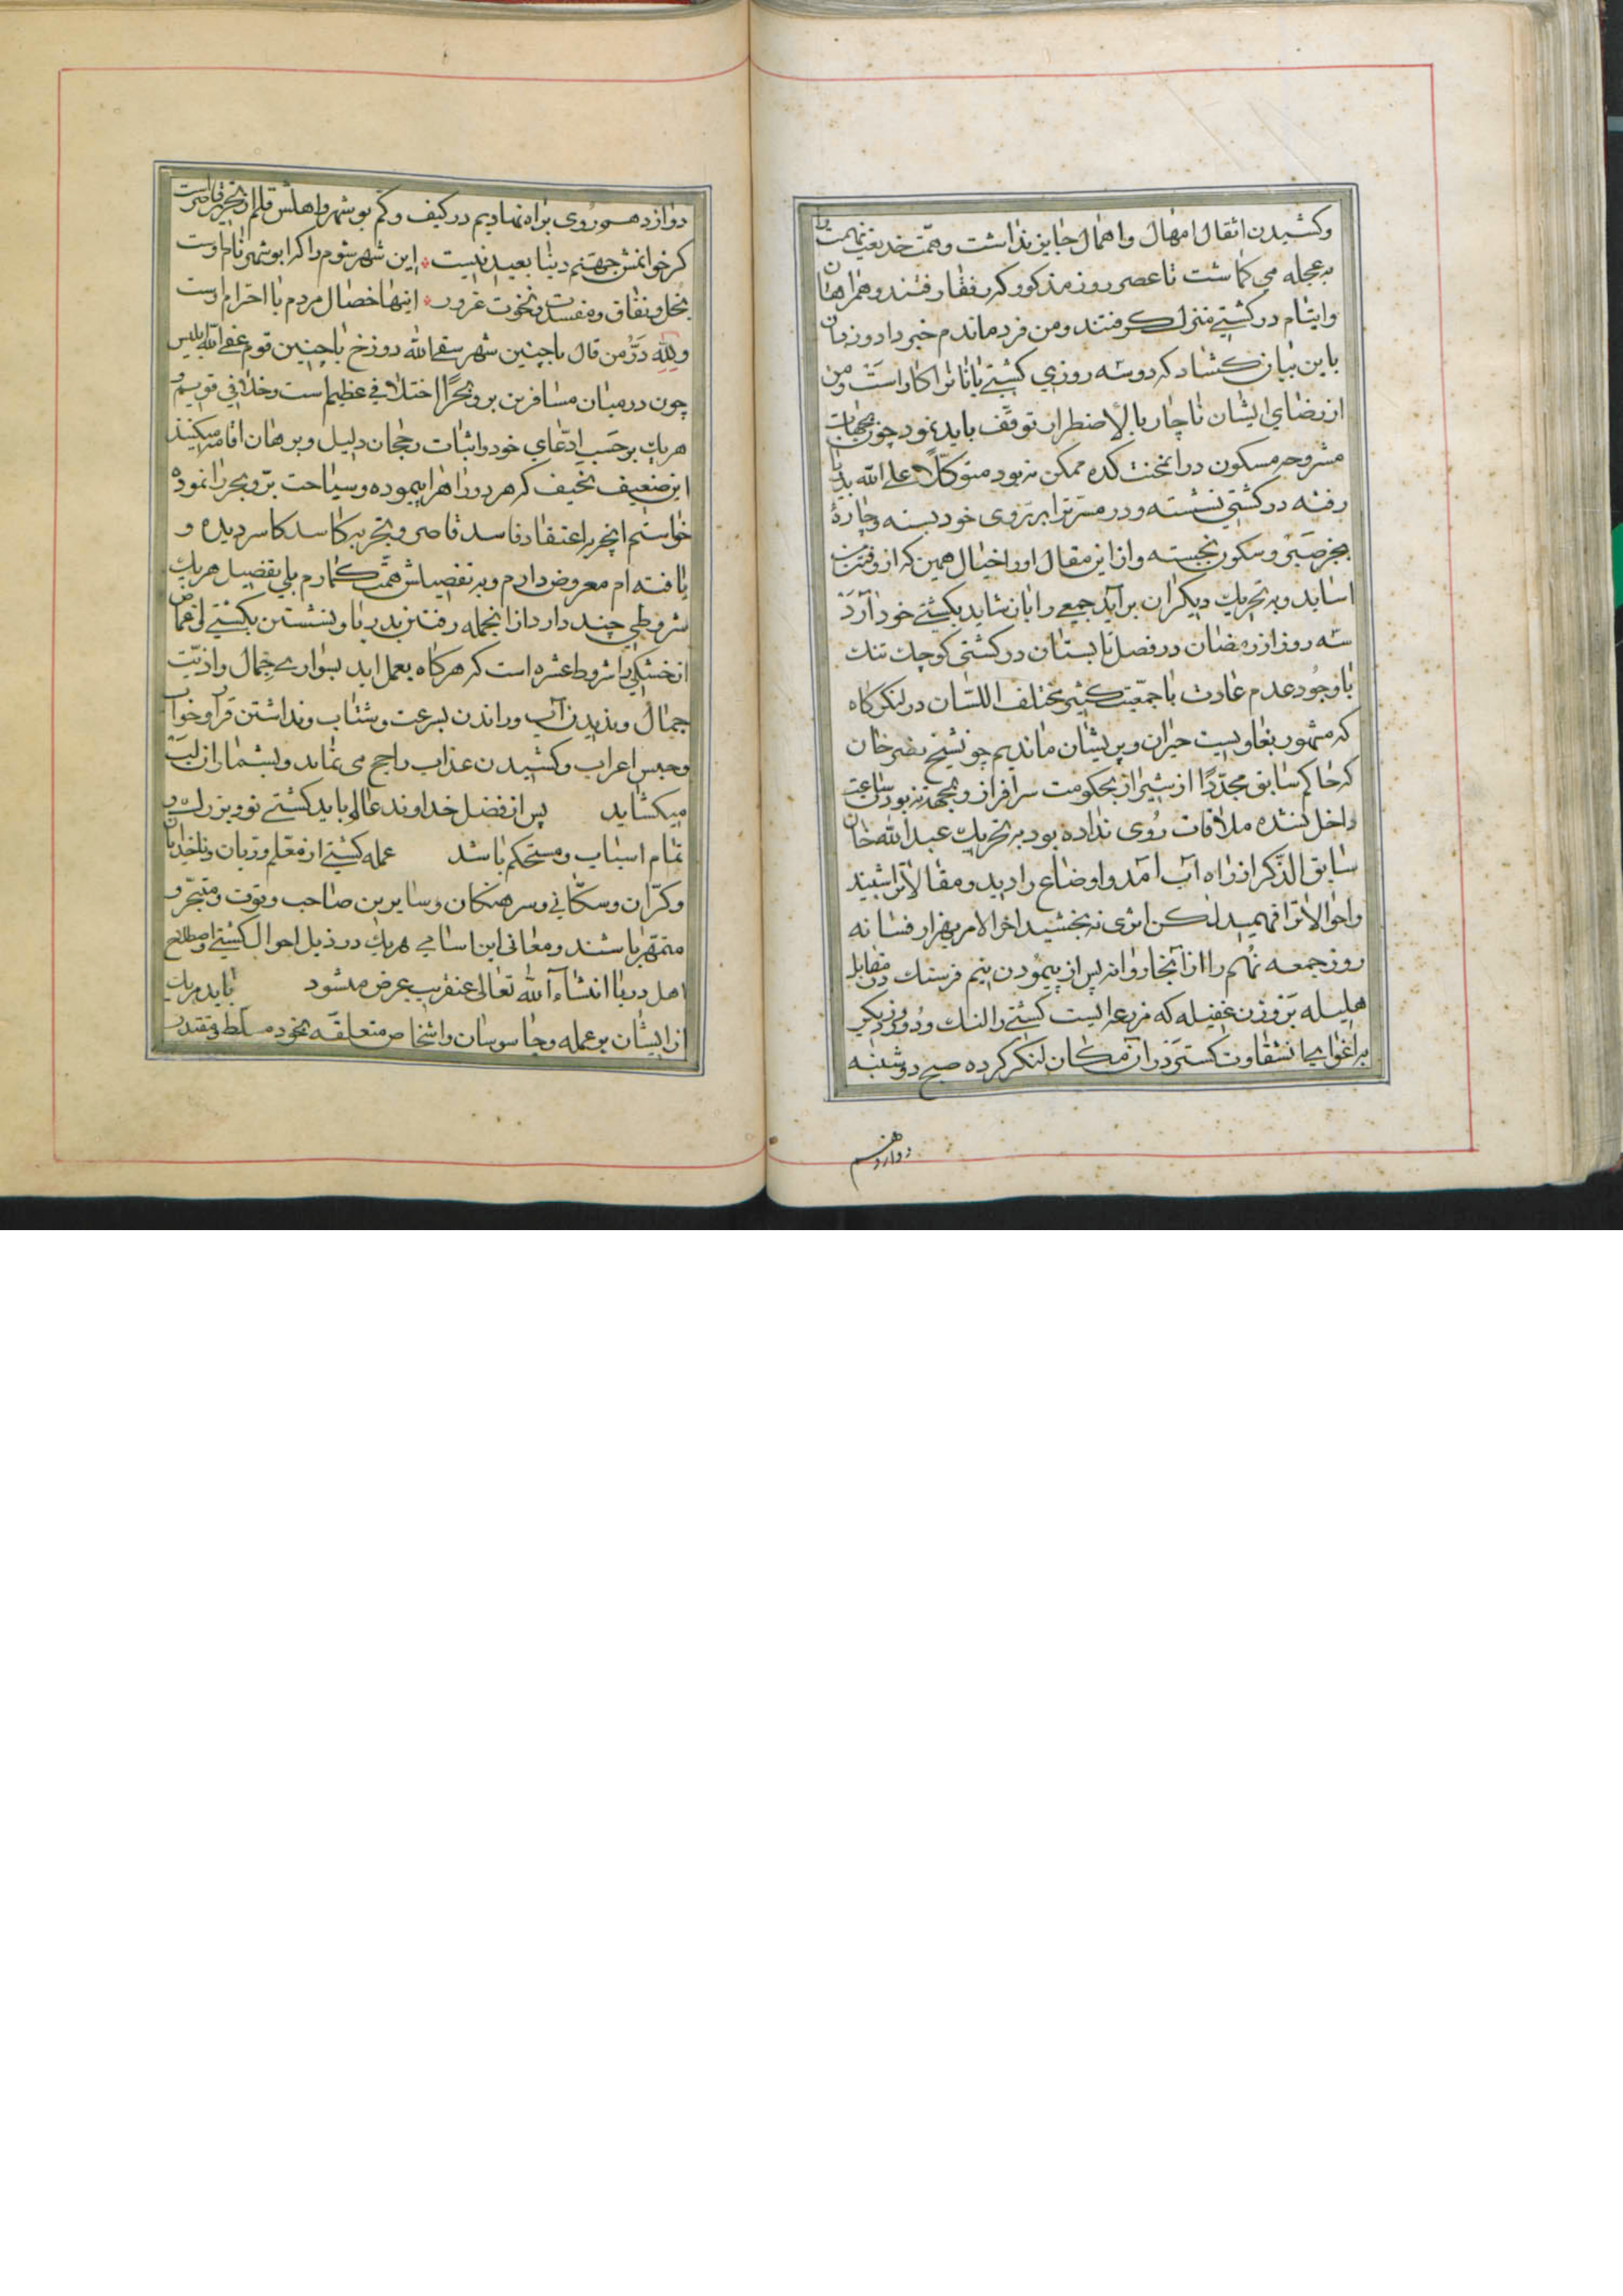 وکشیدن اثقال امهال و اهمال جایز نداشت و همت خدیعت نهمت را
به عجله می کماشت تا عصر روز مذکور که رفقا رفتند و همراهان
وایتام در کشتی منزل کرفتند و من فرد ماندم خبر داد و زبان
باین بیان کشاد که دو سه روزی کشتی بانانرا کار است و من
از رضای ایشان ناچار بالاضطرار توقف باید نمود چون بجهات
مشروحه مسکون در انمحنت کده ممکن نبود متوکلاً علی الله بدریا
رفته در کشتی نشسته و در مسرترا بر روی خود بسته و چارۀ
بجز صبر و سکون نجسته و از این مقال او را خیال همین که از رفتن
اساید و به تحریك دیکران براید جمعی را بان شاید بکشتی خود آرد
سه روز از رمضان در فصل تابستان در کشتی کوچك تنك
با وجود عدم عادت با جمعیت کثیر مختلف اللسان در لنکرکاه
که مشهور بغاویست حیران و پریشان ماندیم چو نشیخ نصر خان
که حاکم سابق مجدداً از شیراز بحکومت سرافراز و بجهته نبودن ساعت
داخل نشده ملاقات روی نداده بود به تحریك عبدالله خان
سابق الذکر از راه آب آمد و اوضاع را دید و مقالاترا شنید
واحوالاترا فهمید لکن اثری نبخشید اخر الامر بهزار فسانه
روز جمعه نهم را از آنجا روانه پس از پیمودن نیم فرسنك در مقابل
هلیله بر وزن عفیله که مزرعه ایست کشتی را لنك و دو روز دیکر
به اغوای جمانشقاوت کستر در آن مکان لنکر کرده صبح دوشنبه
دوازدهم
دوازدهم روی براه نهادیم در کیف و کم بوشهر و اهلش قلم از تحریر قاصر است
کر خوانمش جهنم دنیا بعید نیست * این شهر شوم را که ابوشهر نام اوست
بخل و نفاق و مفسدت و نخوت غرور * اینها خصال مردم با احترام اوست
ولله در من قال باچنین شهر سقی الله دوزخ باچنین قوم عفی الله ابلیس
چون در میان مسافرین بر و بحر اختلافی عظیم است و خلافی قویم و
هریك بر حسب ادعای خود و اثبات رجحان دلیل و برهان اقامه میکنند
این ضعیف نحیف که هر دو راه را پیموده و سیاحت بر و بحر را نموده
خواستم انچه به اعتقاد فاسد قاصر و بتجربه کاسد کاسر دیده و
یافته ام معروض دارم و به تفصیلش همت کمارم بلی تفصیل هریك
شروطی چند دارد از انجمله رفتن بدریا و نشستن بکشتی
از خشکی را شروط عشره است که هرکاه بعمل اید بسواری جمال و اذیت
جمال و بدیدن آب و راندن بسرعت و شتاب و نداشتن قرار و خواب
و حبس اعراب و کشیدن عذاب راجح می نماید و بیشمار از آن لب
میکشاید پس از فضل خداوند عالم باید کشتی نو و بزرك و
تمام اسباب و مستحکم باشد عمله کشتی از معلم و ربان و ناخدایان
و کرانی و سکانی و سرهنکان و سایرین صاحب وقوت و متبحر و
متمهر باشند و معانی این اسامی هریك در ذیل احوال کشتی و اصطلاح
اهل دریا انشاء الله تعالی عنقریب عرض میشود باید هریك
از ایشان بر عمله و جاسوسان و اشخاص متعلقه بخود مسلط و مقتدر